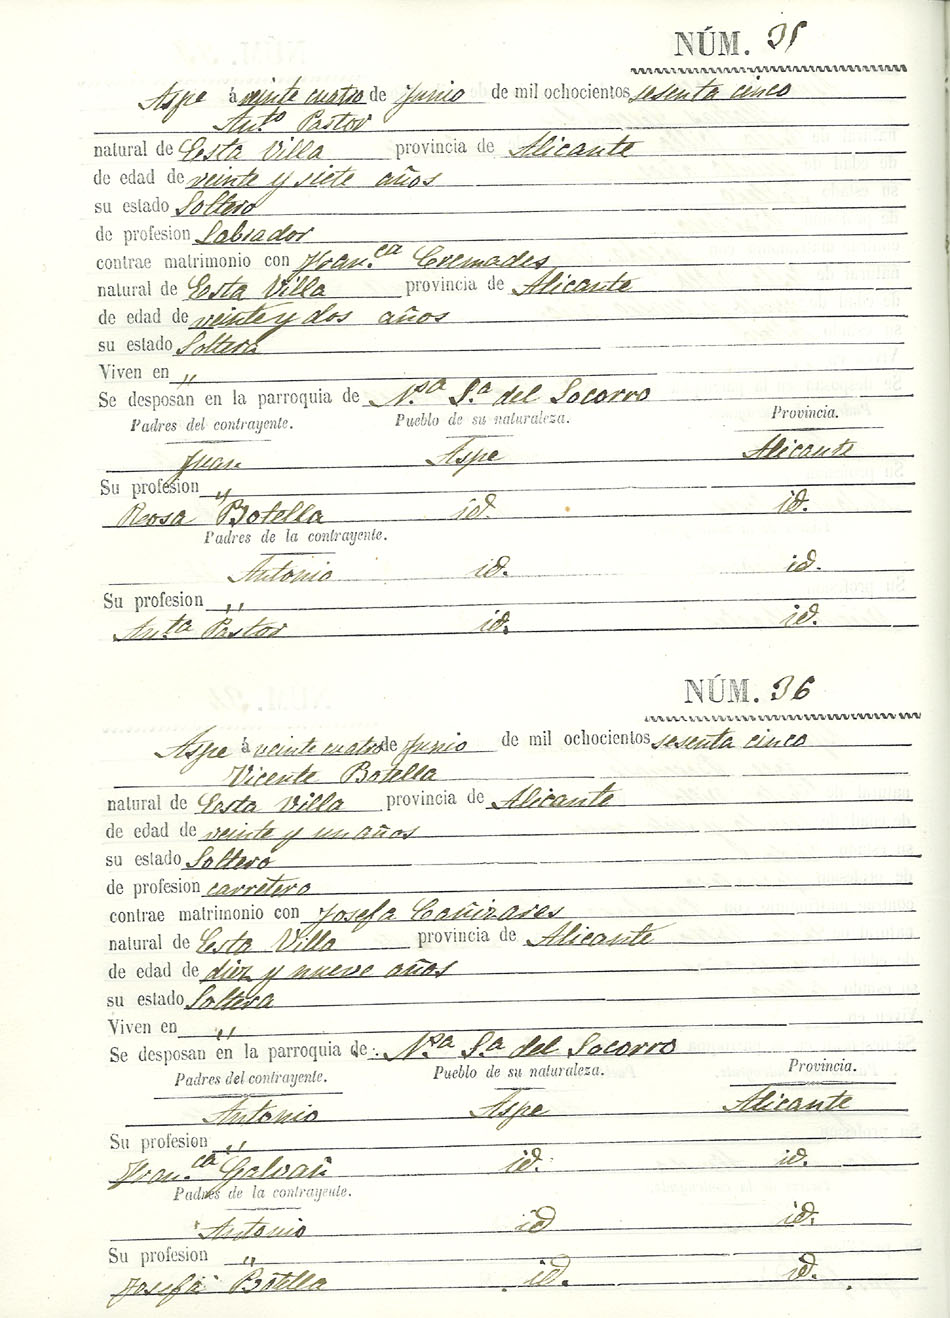 NÚM. 35
Aspe á veinte cuatro de Junio de mil ochocientos sesenta cinco
Ant.o Pastor
natural de Esta Villa provincia de Alicante
de edad de veinte y siete años
su estado Soltero
de profesion Labrador
contrae matrimonio con Fran.ca Cremades
natural de Esta Villa provincia de Alicante
de edad de veinte y dos años
su estado Soltera
Viven en "
Se desposan en la parroquia de N.sa S.a del Socorro
Padres del contrayente. Pueblo de su naturaleza. Provincia.
Juan Aspe Alicante
Su profesion "
Rosa Botella id. id.
Padres de la contrayente.
Antonio id. id.
Su profesion "
An.ta Pastor id. id.
NÚM. 36
Aspe á veinte cuatro de Junio de mil ochocientos sesenta cinco
Vicente Botella
natural de Esta Villa provincia de Alicante
de edad de veinte y un años
su estado Soltero
de profesion carretero
contrae matrimonio con Josefa Cañizares
natural de Esta Villa provincia de Alicante
de edad de diez y nueve años
su estado Soltera
Viven en "
Se desposan en la parroquia de N.sa S.a del Socorro
Padres del contrayente. Pueblo de su naturaleza. Provincia.
Antonio Aspe Alicante
Su profesion "
Fran.ca Galvañ id. id.
Padres de la contrayente.
Antonio id id.
Su profesion "
Josefa Botella id. id.